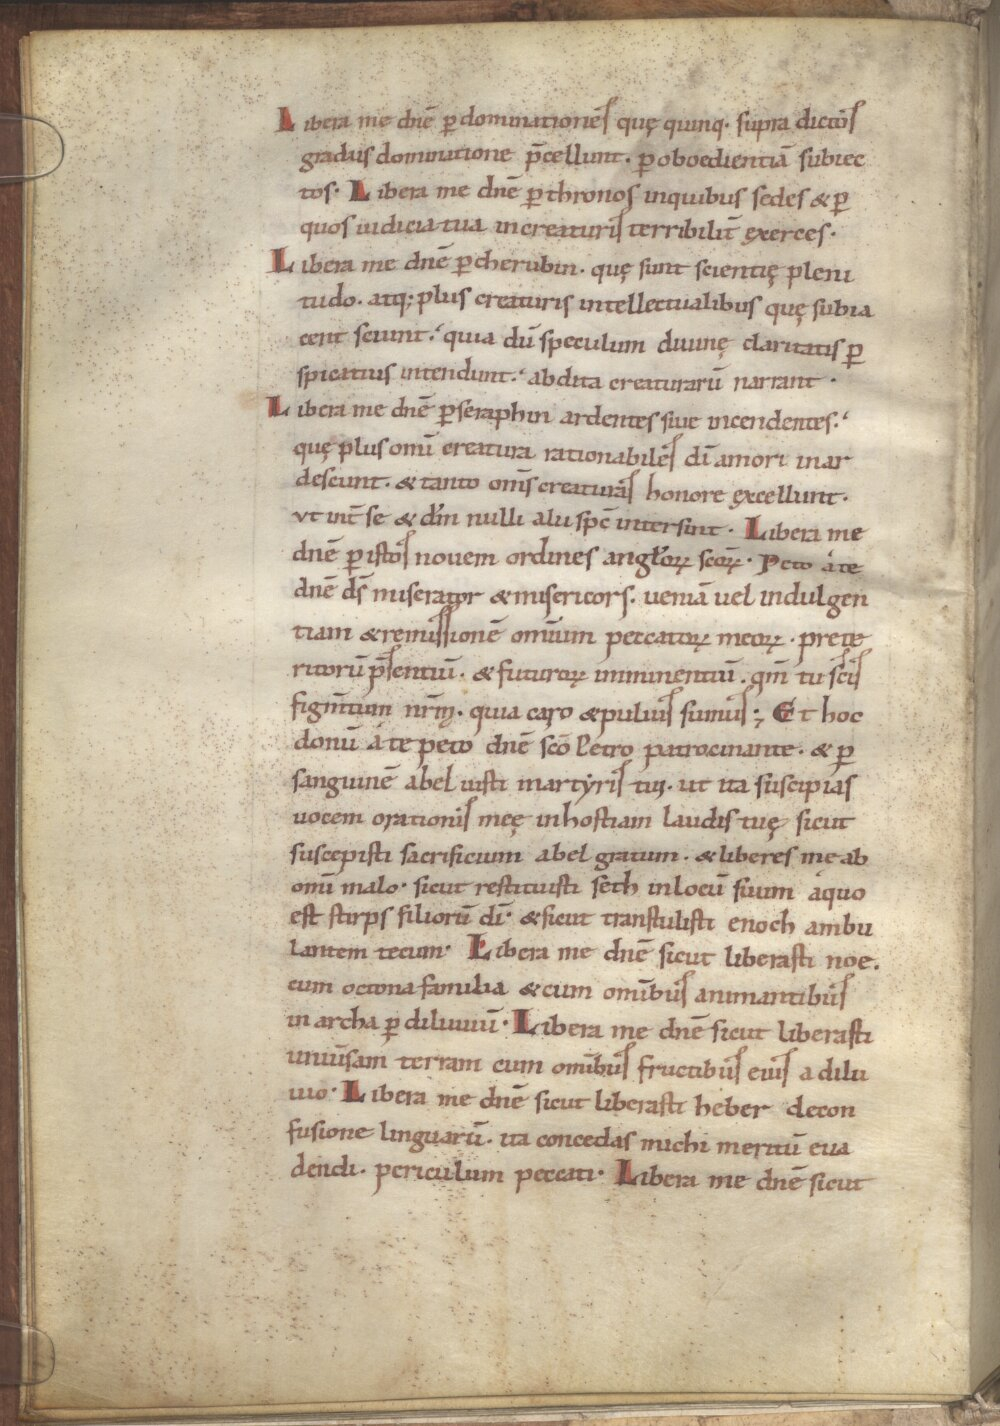 Libera me dnē ꝑ dominationes quę quinq. supra dictos
gradus dominatione p̄cellunt. ꝑ oboedientiā subiec
tos. Libera me dnē ꝑ thronos inquibus sedes & ꝑ
quos iudicia tua increaturis terribilit̄ exerces.
Libera me dnē ꝑ cherubin. quę sunt scientię pleni
tudo. atq; plus creaturis intellectualibus quę subia
cent sciunt. quia dū speculum diuinę claritatis ꝑ
spicatius intendunt. abdita creaturarū narrant.
Libera me dnē ꝑ seraphin ardentes siue incendentes.
quę plus omī creatura rationabiles dī amori inar
descunt. & tanto oms̄ creaturas honore excellunt.
vt int̄ se & dm̄ nulli alii spc̄ intersint. Libera me
dnē ꝑ istos nouem ordines angłorꝝ scorꝝ. Peto á te
dnē ds̄ miserator & misericors. ueniā uel indulgen
tiam & remissionē omium peccatorꝝ meorꝝ. prete
ritorū p̄sentiū. & futurorꝝ imminentiū. qm̄ tu scis
figm̄tum nrm̄. quia caro & puluis sumus; Et hoc
donū á te peto dnē scō Petro patrocinante. & ꝑ
sanguinē abel iusti martyris tui. ut ita suscipias
uocem orationis meę inhostiam laudis tuę sicut
suscepisti sacrificium abel gratum. & liberes me ab
omī malo. sicut restituisti seth inlocū suum áquo
est stirps filiorū dī. & sicut transtulisti enoch ambu
lantem tecum. Libera me dnē sicut liberasti noe.
cum octona familia & cum omībus animantibus
in archa ꝑ diluuiū. Libera me dnē sicut liberasti
uniūsam terram cum omībus fructibus eius a dilu
uio. Libera me dnē sicut liberasti heber decon
fusione linguarū. ita concedas michi meritū eua
dendi. periculum peccati. Libera me dnē sicut